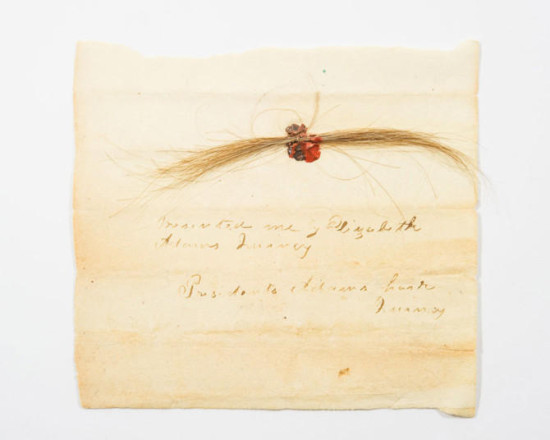 Presented me by Elizabeth
Adams Quincy
Presidents Adams
Quincy